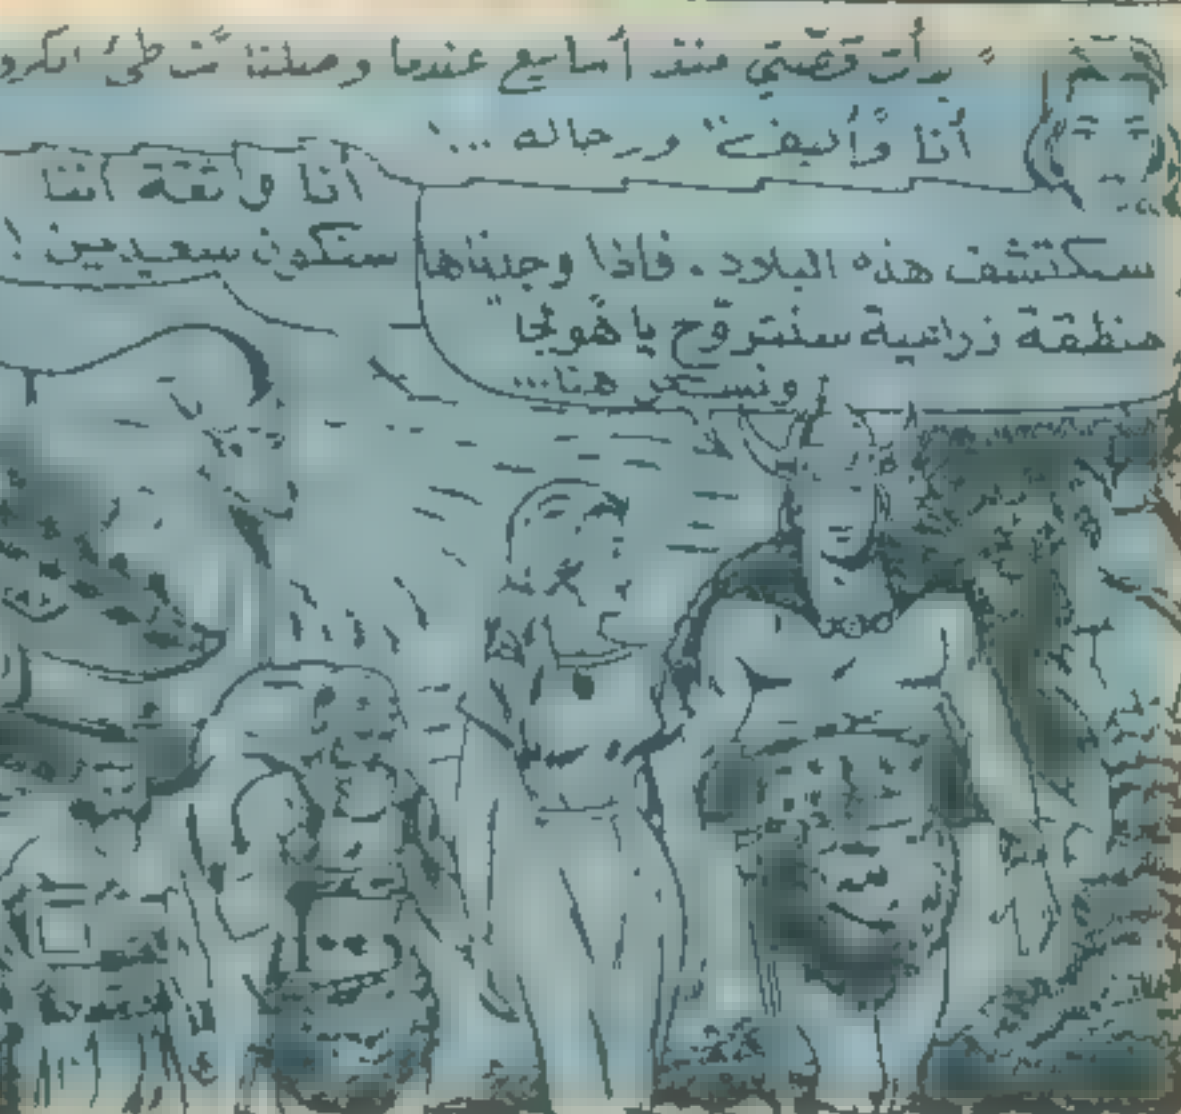 بدأت قصّتي منذ أسابيع عندما وصلنا
أنا و ورجاله ...
سنكتشف هذه البلاد. فاذا وجدناها
منطقة زراعية سنتزوّج يا هولجا
ونسكن هنا...
انا واثقة اننا
سنكون سعيدين!